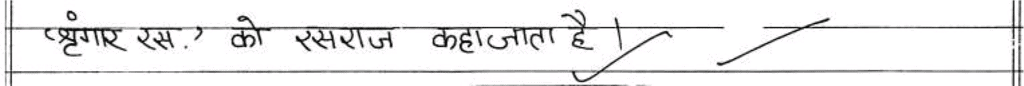 'श्रृंगार रस.' को रसराज कहाजाता है।